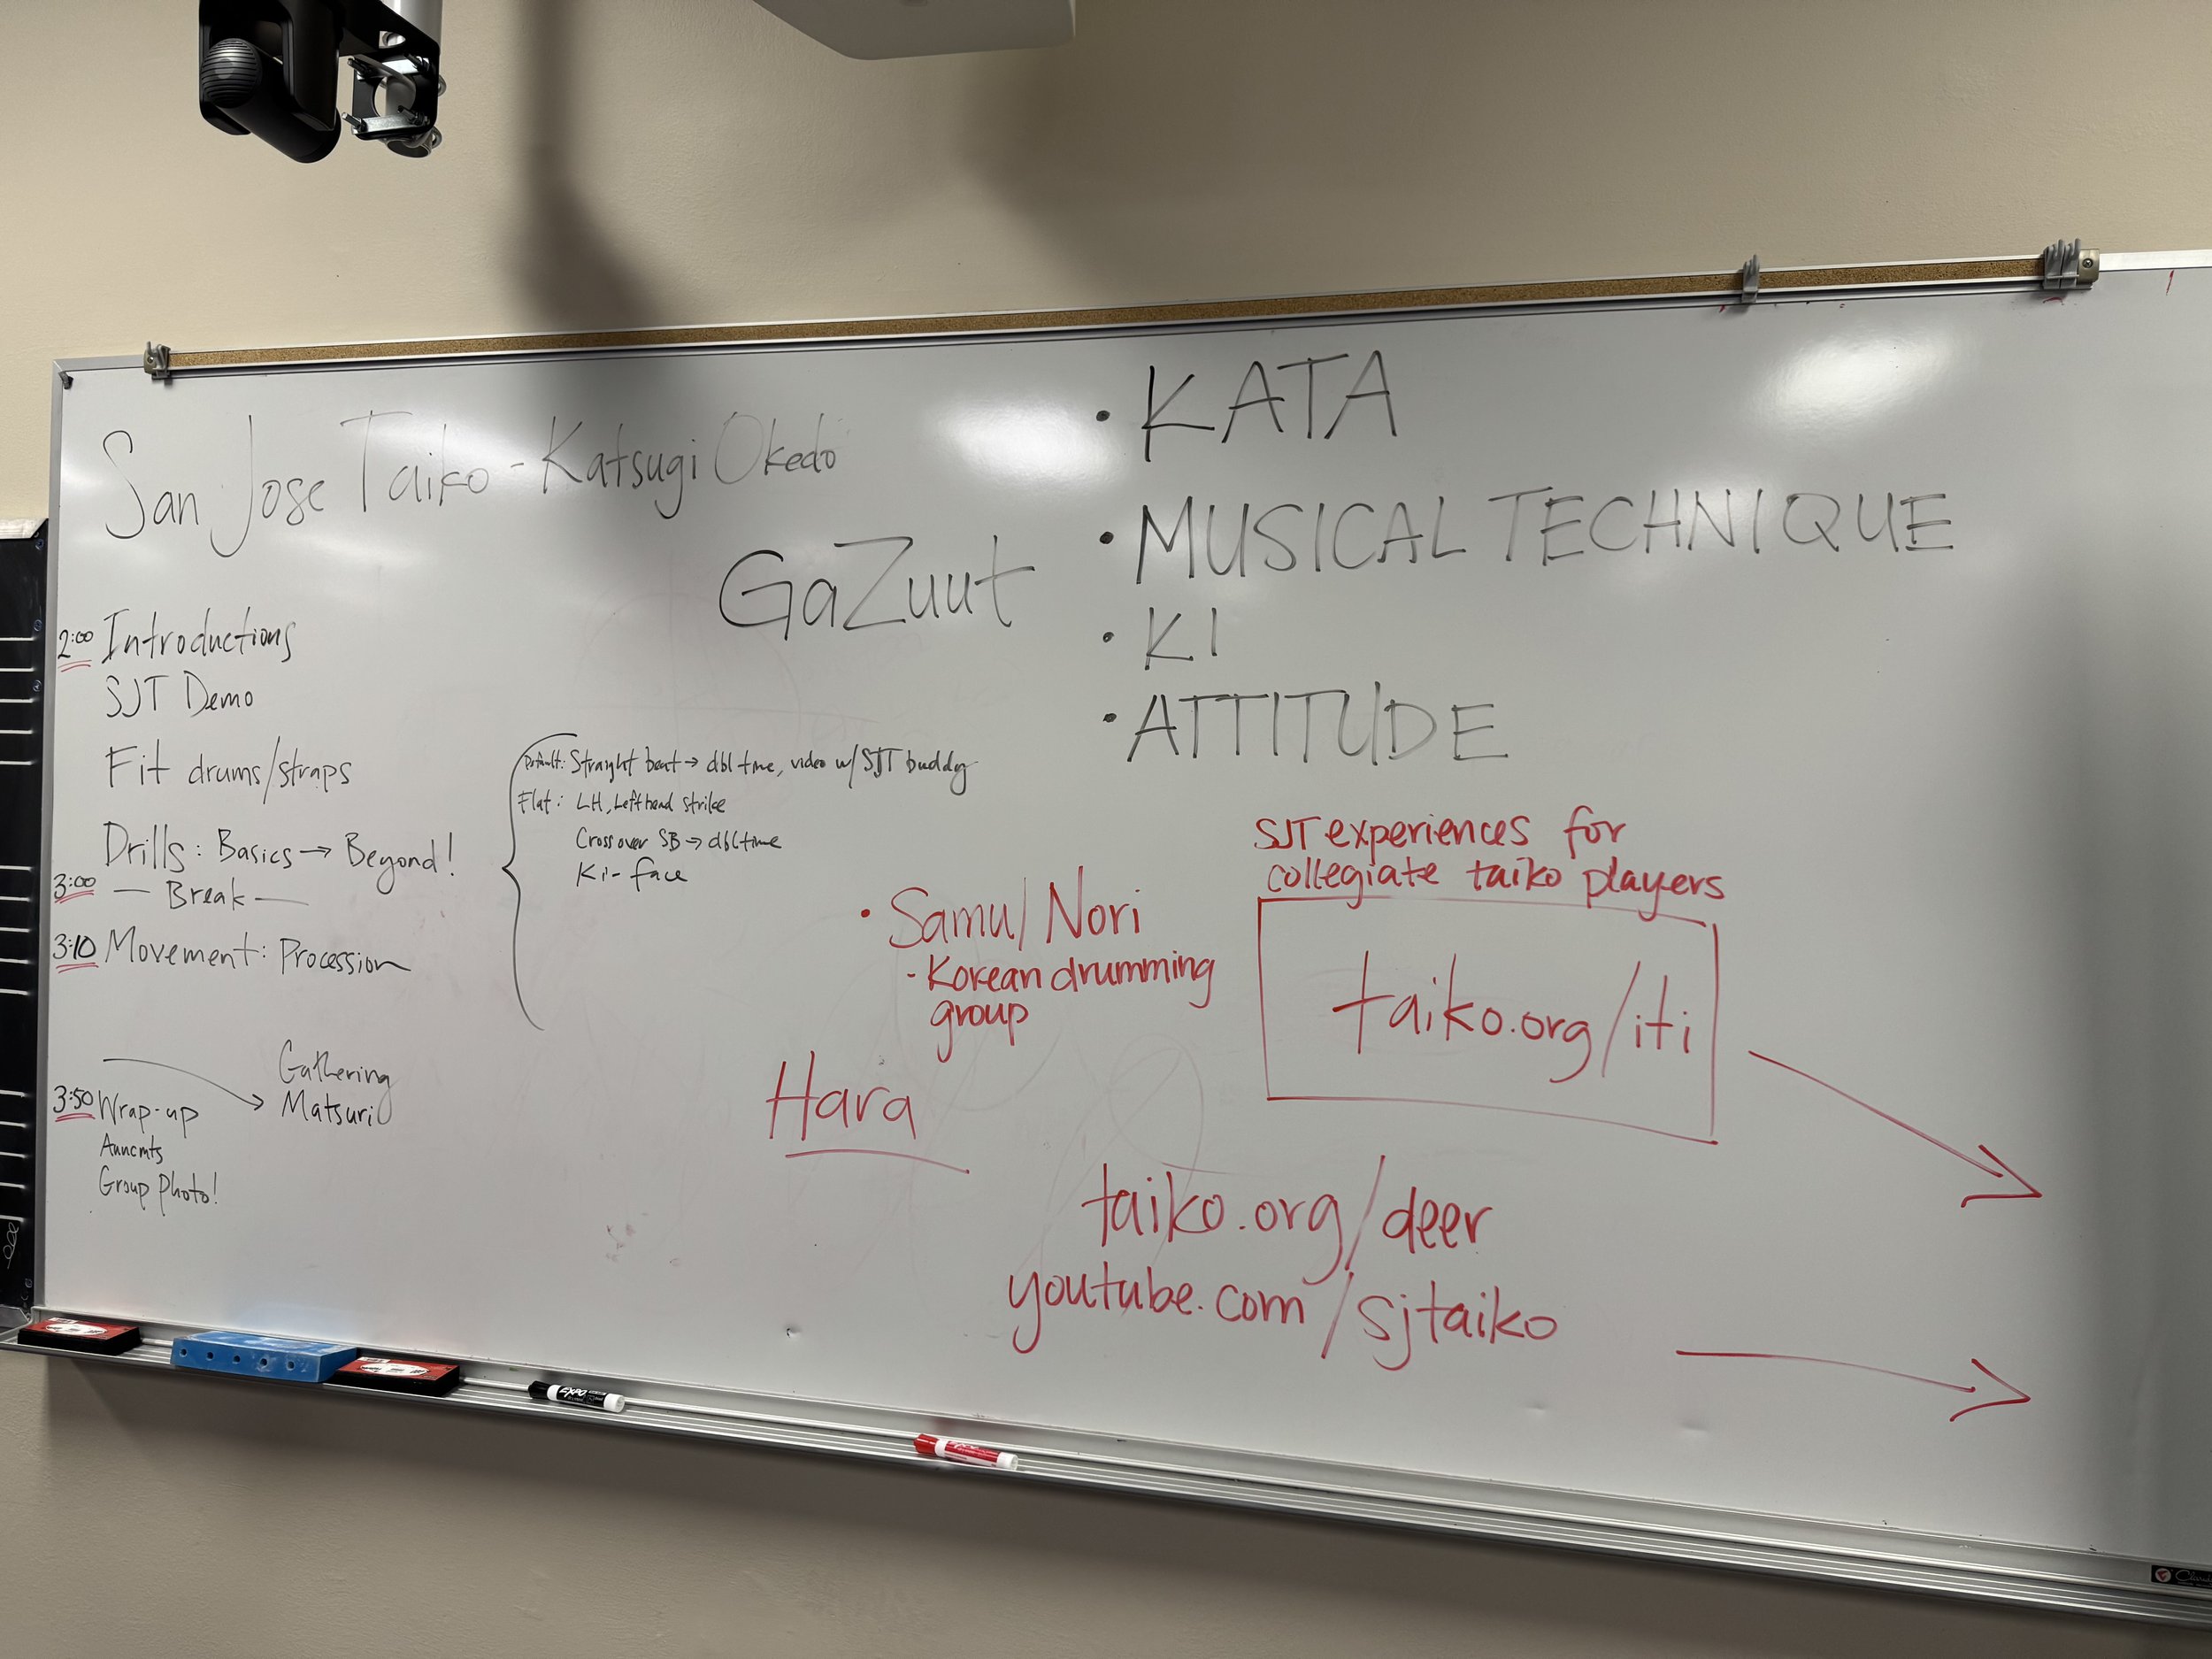 San Jose Taiko - Katsugi Okedo
GaZuut
2:00 Introductions
SJT Demo
Fit drums/straps
Drills: Basics → Beyond!
3:00 — Break —
3:10 Movement: Procession
Gathering
Matsuri
3:50 Wrap-up
Anncmts
Group Photo!
Straight beat → dbl time, video w/ SJT buddy
Flat: LH, Left hand strike
Crossover SB → dbl time
Ki - face
• KATA
• MUSICAL TECHNIQUE
• KI
• ATTITUDE
• Samul Nori
- Korean drumming
group
Hara
SJT experiences for
collegiate taiko players
taiko.org/iti
taiko.org/deer
youtube.com/sjtaiko
EXPO